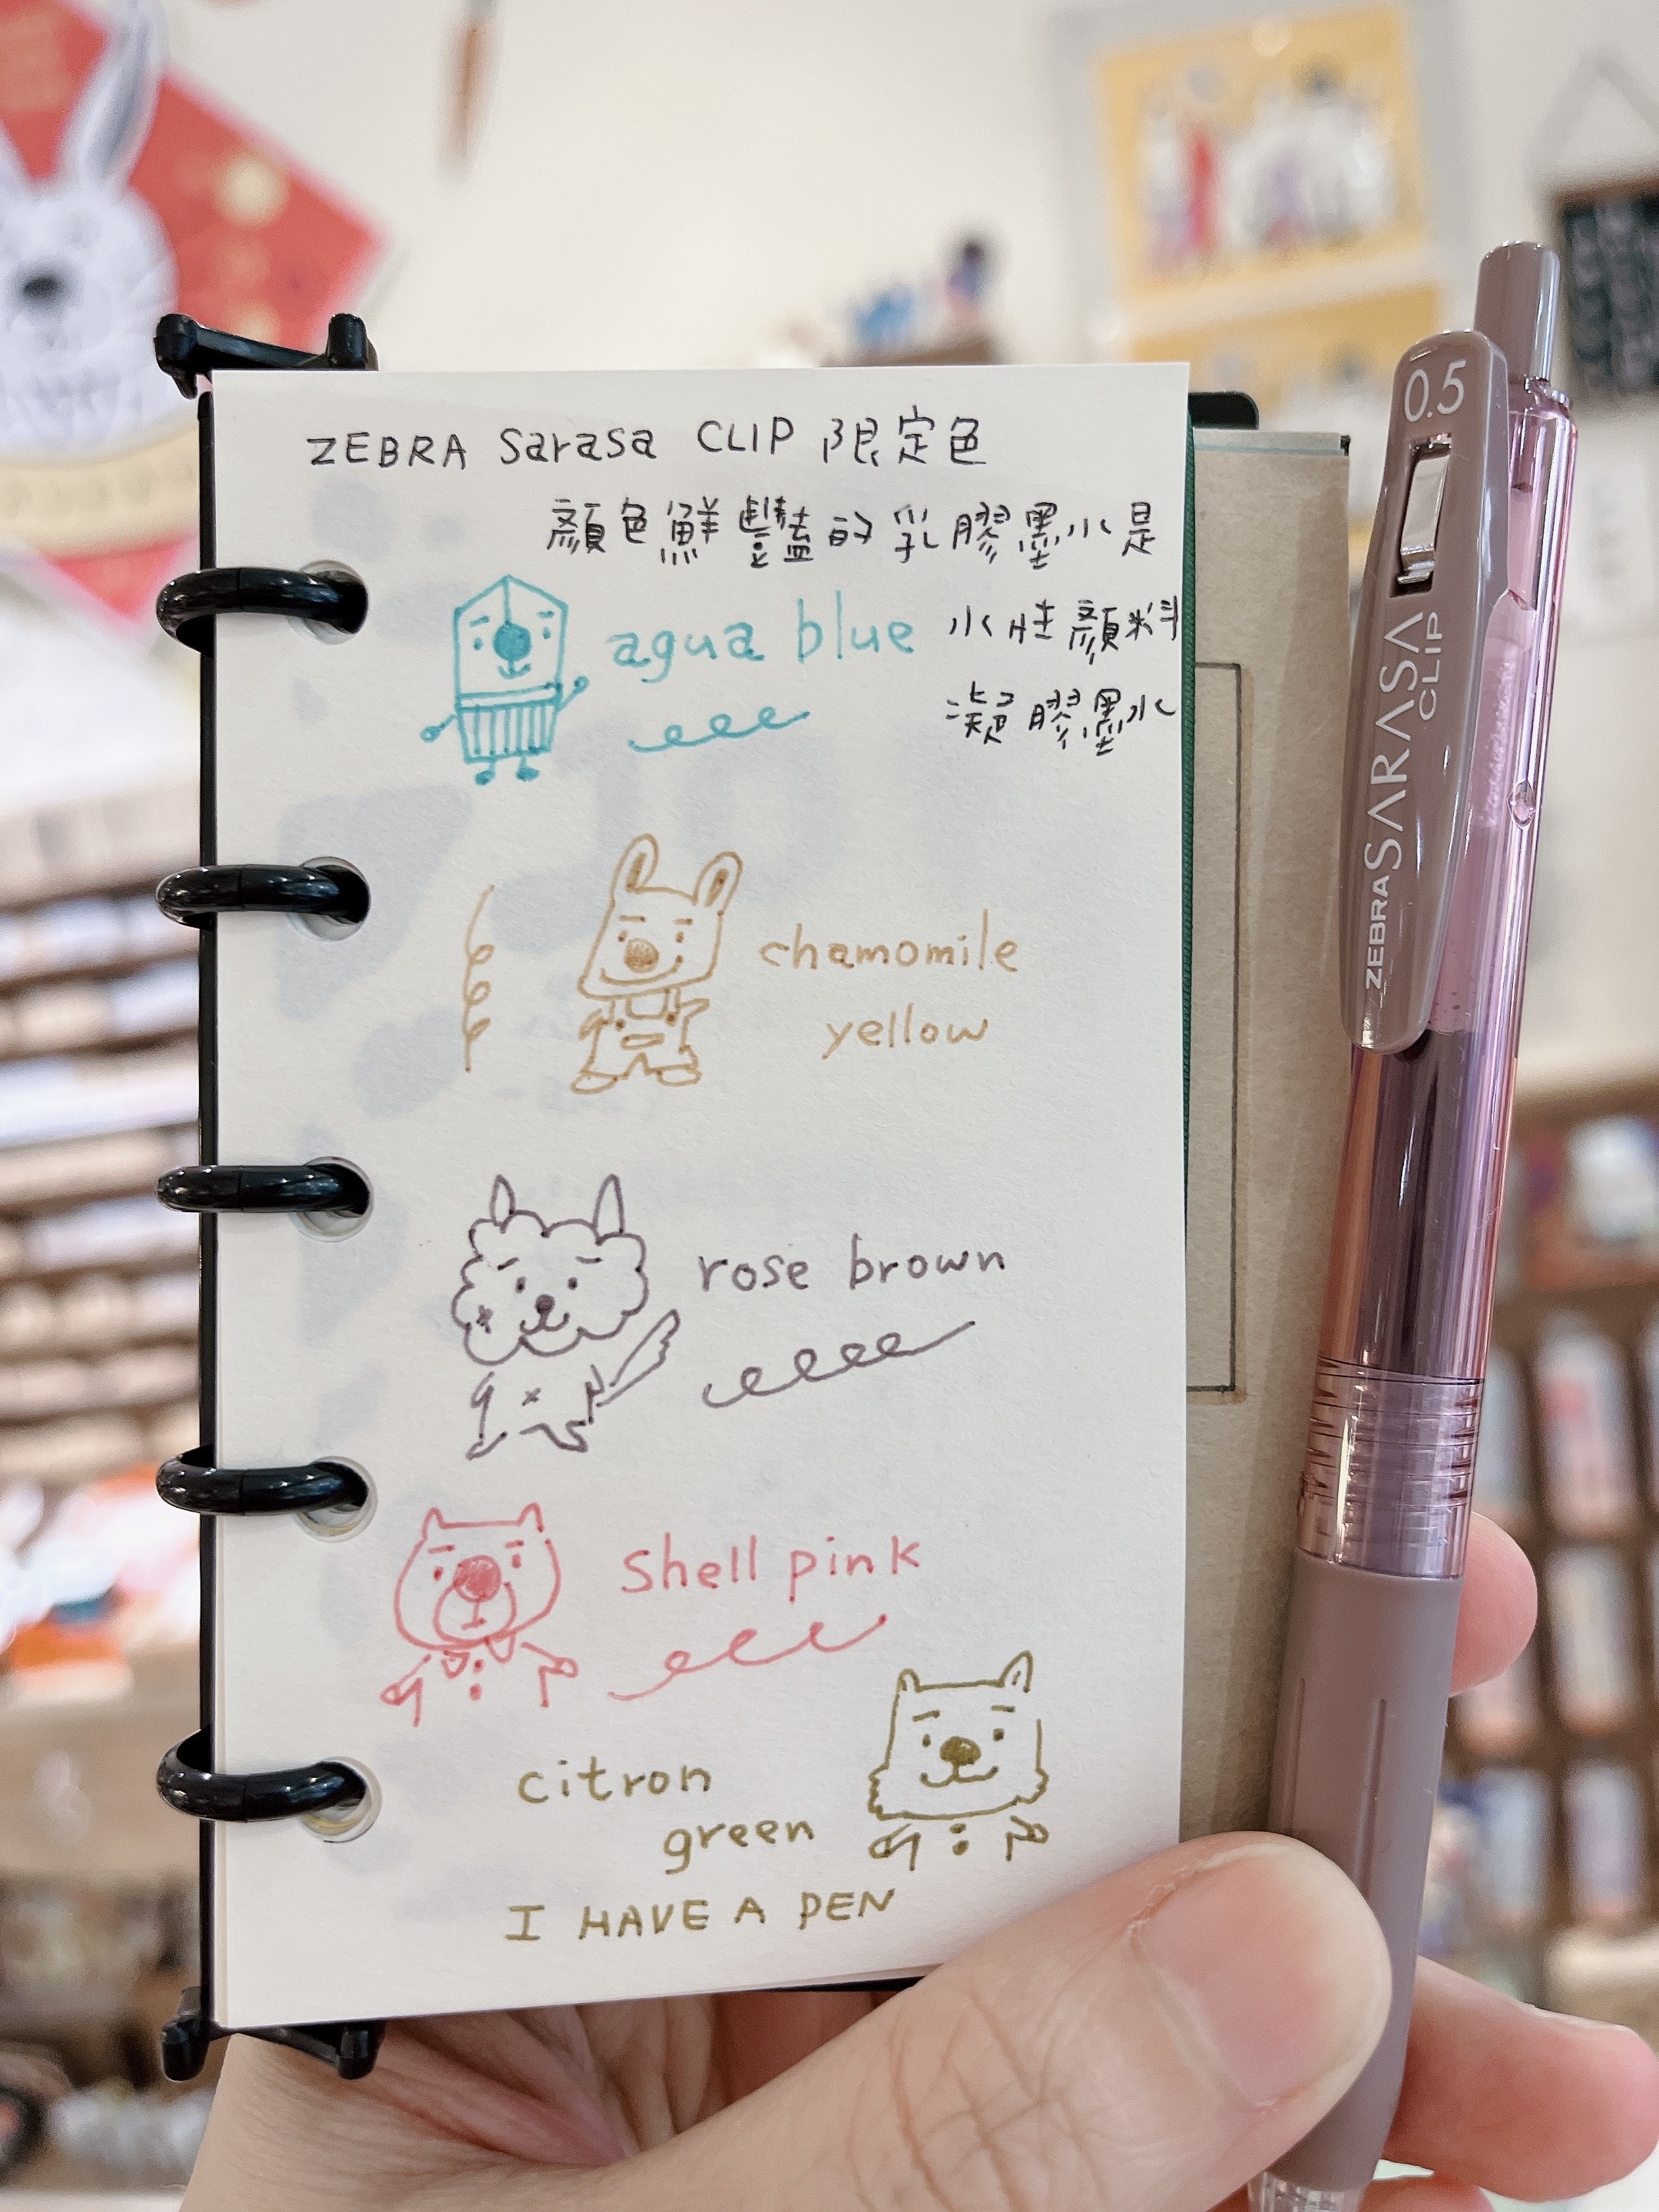 ZEBRA Sarasa CLIP 限定色
顏色鮮豔的乳膠墨水是
水性顏料
凝膠墨水
aqua blue
chamomile
yellow
rose brown
shell pink
citron
green
I HAVE A PEN
0.5
ZEBRA SARASA CLIP